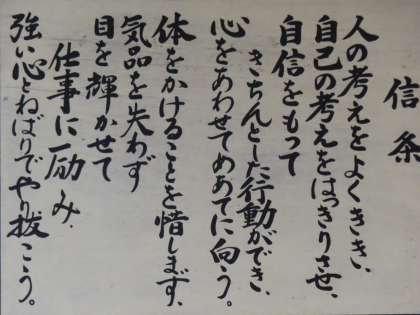 信条
人の考えをよくきき、
自己の考えをはっきりさせ、
自信をもって
きちんとした行動ができ、
心をあわせてめあてに向う。
体をかけることを惜します、
気品を失わず
目を輝かせて
仕事に励み、
強い心とねばりでやり抜こう。